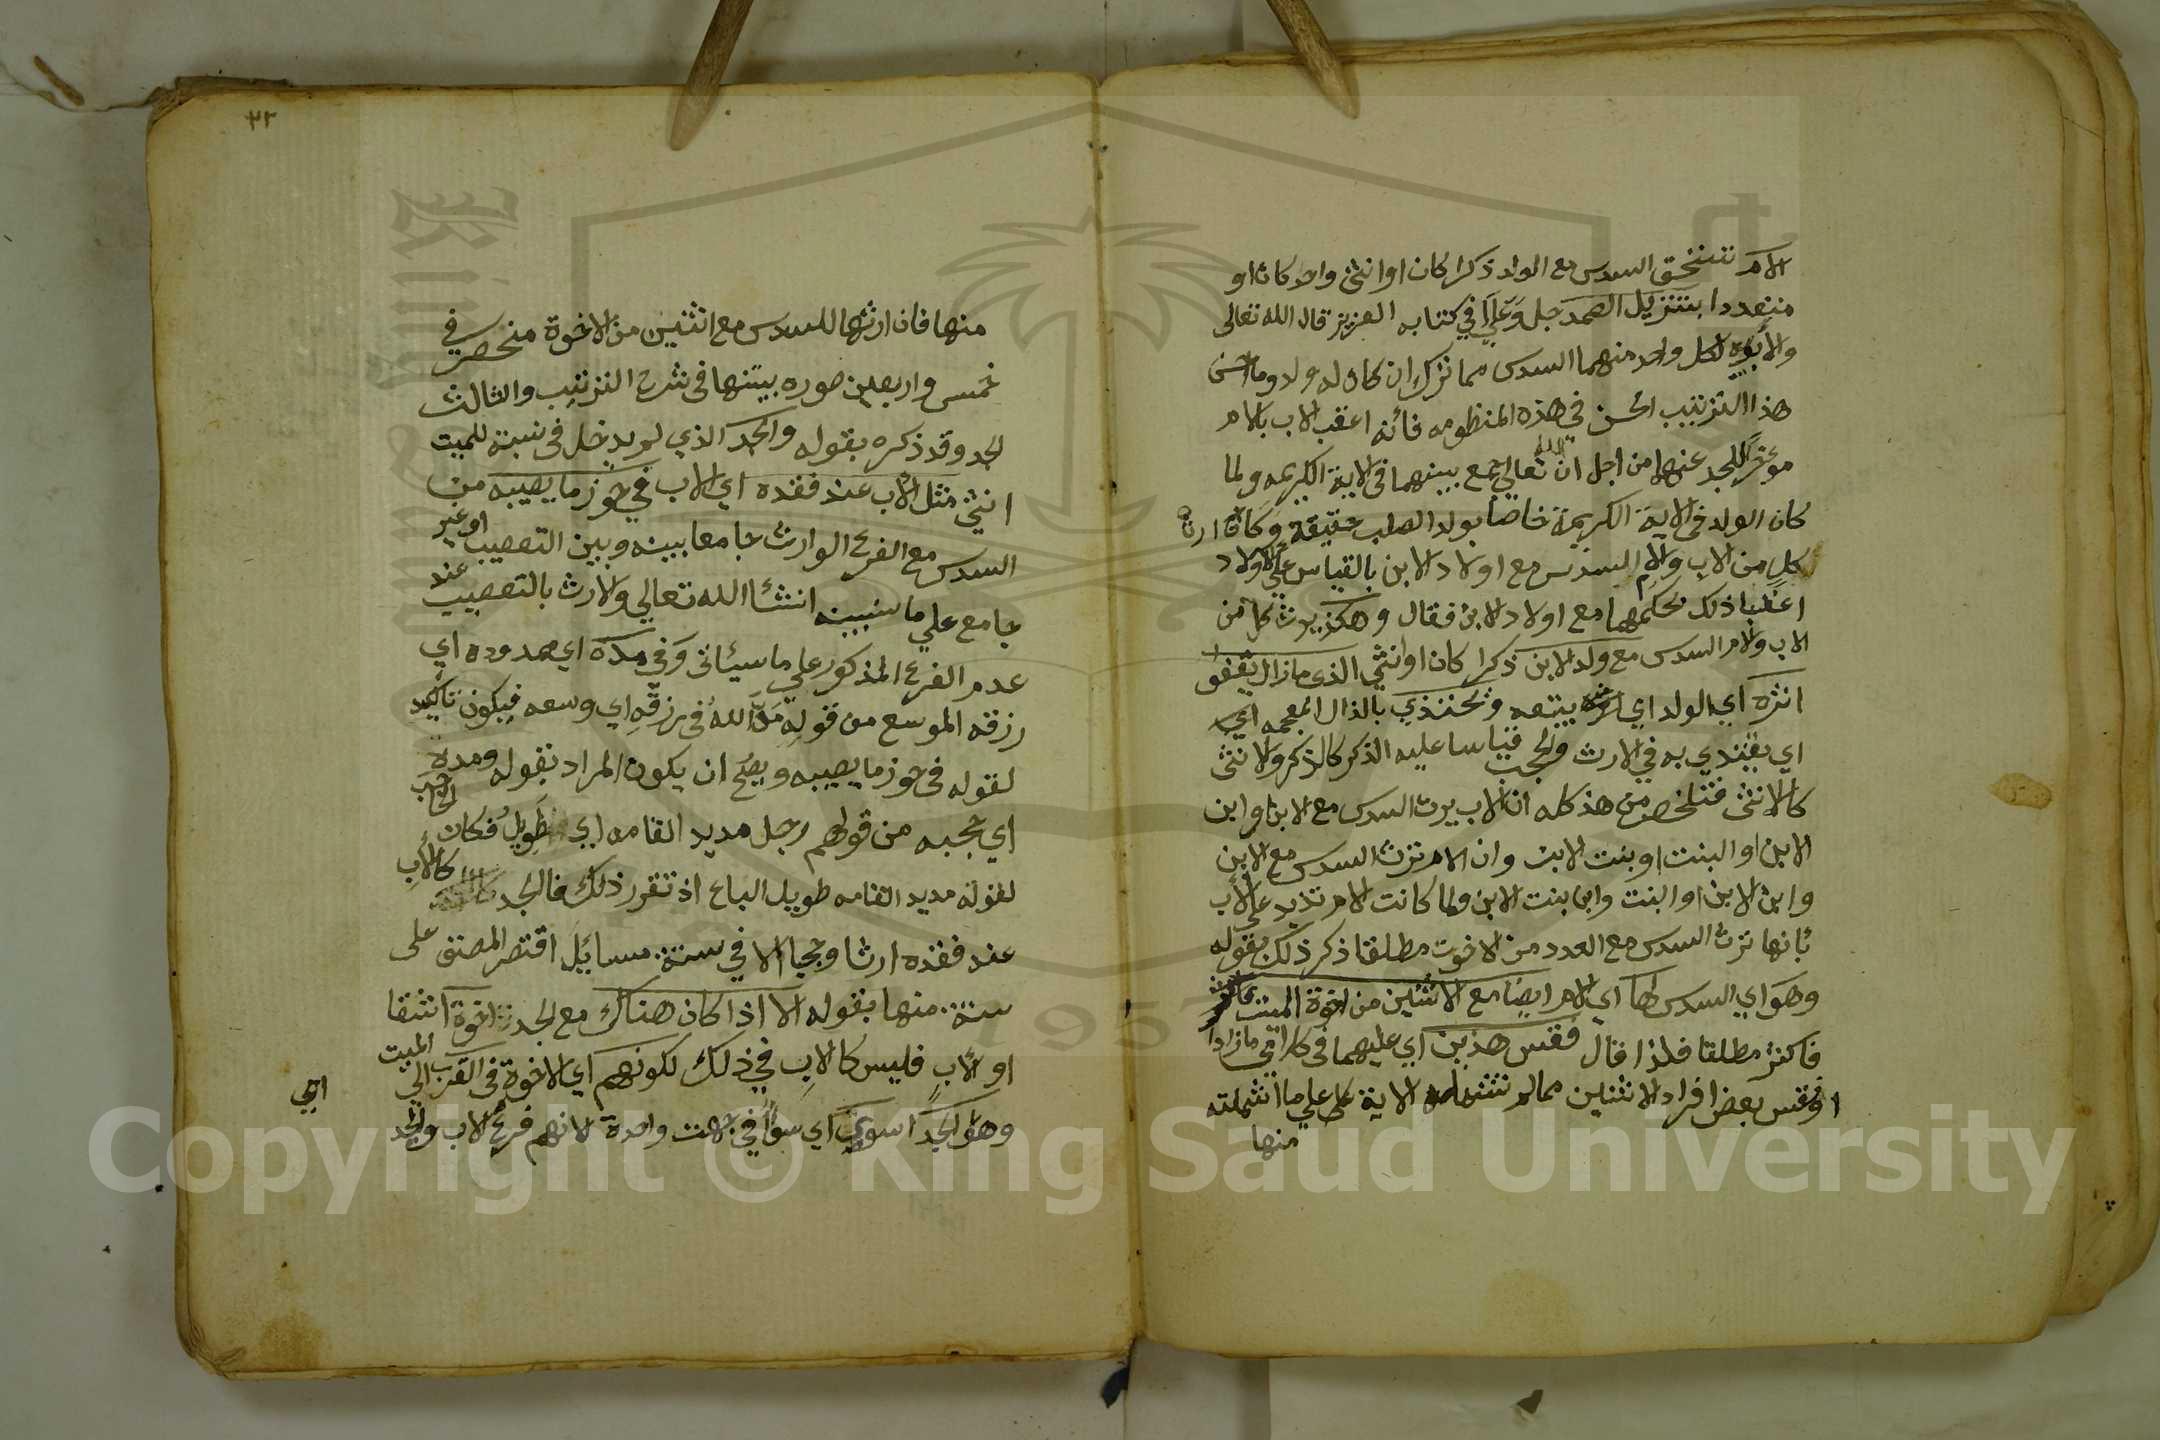 الام تستحق السدس مع الولد ذكرا كان او انثى واحد كان او
متعددا بتنزيل الصمد جل وعلى في كتابه العزيز قال الله تعالى
ولابويه لكل واحد منهما السدس مما ترك ان كان له ولد وما احسن
هذا الترتيب الحسن في هذه المنظومه فانه اعقب الاب بالام
موخرا للجد عنهما من اجل ان الله تعالى جمع بينهما في الاية الكريمه ولما
كان الولد في الاية الكريمة خاصا بولد الصلب حقيقة وكان ارث
كل من الاب والام السدس مع اولاد الابن بالقياس على الاولاد
اعقبا ذلك بحكمهما مع اولاد الابن فقال وهكذي يرث كل من
الاب والام السدس مع ولد الابن ذكرا كان او انثى الذي مازال يقفوا
اثره اي الولد اي يتبعه ويحتذي بالذال المعجمه اي
اي يقتدي به في الارث والحجب قياسا عليه الذكر كالذكر والانثى
كالانثى فتلخص من هذ كله ان الاب يرث السدس مع الابن وابن
الابن او البنت او بنت الابن وان الام ترث السدس مع الابن
وابن الابن او البنت وابن بنت الابن ولما كانت الام تزيد على الاب
بانها ترث السدس مع العدد من الاخوت مطلقا ذكر ذلك بقوله
وهو اي السدس لها اي الام ايضا مع الاثنين من اخوة الميت
فاكثر مطلقا فلذا قال فقس هذين اي عليهما في كل اتي مازاد
او قس بعض افراد الاثنين ممالم تشمله الاية على ما اشملته
منها
٣٢
منها فان ارثها للسدس مع اثنين من الاخوة منحصر في
خمس واربعين صوره بينتها في شرح الترتيب والثالث
الجد وقد ذكره بقوله والجد الذي لم يدخل في نسبته للميت
انثى مثل الاب عند فقده اي الاب في حوز ما يصيبه من
السدس مع الفرع الوارث جامعا بينه وبين التعصيب او غير
جامع علي ما سنبينه انشا الله تعالي والارث بالتعصيب عند
عدم الفرع المذكور علي ما سيئاتي وفي مده اي ممدوده اي
رزقه الموسع من قوله مد الله في رزقه اي وسعه فيكون تاكيد
لقوله في حوز ما يصيبه ويصح ان يكون المراد بقوله ومده الحجب
اي حجبه من قولهم رجل مديد القامه اي طويل فكان
لقوله مديد القامه طويل الباع اذ تقرر ذلك فالجد كالاب
عند فقده ارثا وحجبا الا في ستة مسايل اقتصر المصنف على
ستة منها بقوله الا اذا كان هناك مع الجد اخوة اشقا
او لاب فليس كالاب في ذلك لكونهم اي الاخوة في القرب الي الميت
وهو الجد اسوي اي سوا في جهت واحدة لانهم فرع الاب والجد